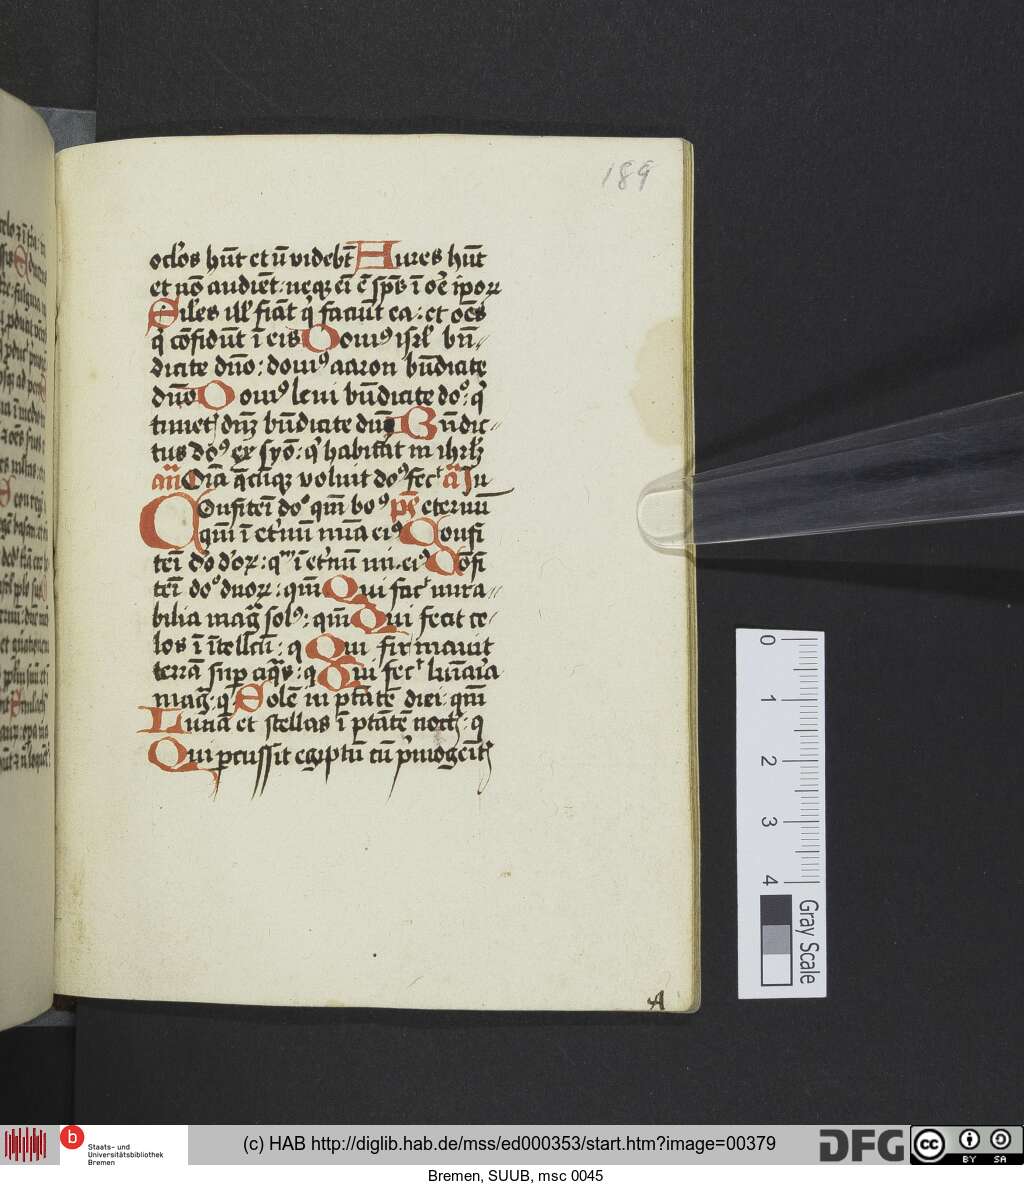 189
oclos hūt et n̄ videbt̄ Aures hūt
et nō audiēt: neqꝫ eī ē sps̄ ī oē ipoꝝ
Siles ill' fiāt q̇ faciūt ea: et oēs
q̇ cōfidūt ī eis Domꝰ isrl̄ bn̄
dicite dn̄o: domꝰ aaron bn̄dicite
dn̄o Domꝰ levi bn̄dicite doͦ: q̇
timet dn̄ꝫ bn̄dicite dn̄o Bn̄dic
tus doͦ ex syō: q̇ habitat in ihrl̄
an̄ Oīa q̄cūqꝫ voluit doꝰ fecͭ a᷈ In
Confitem̄ doͦ qm̄ boꝰ ps̄ eternū
qm̄ ī et'nū mīa eiꝰ Confi
tem̄ do d'oꝝ: qm̄ ī et'nū mi. eiꝰ Cōfi
tem̄ doͦ dnoꝝ: qm̄ Qui facͭ mira
bilia mag solꝰ: qm̄ Qui fecit ce
los ī ītellcū: q Qui firmavit
terrā sup aq̄s: q Qui fecͭ lūīaria
mag: q Solē in ptātē diei: qm̄
Lunā et stellas ī ptātē noct: q
Qui percussit egyptū cū p̄mogēit
A
0
1
2
3
4
Gray Scale
b
Staats- und
Universitätsbibliothek
Bremen
(c) HAB http://diglib.hab.de/mss/ed000353/start.htm?image=00379
DFG
cc
BY SA
Bremen, SUUB, msc 0045